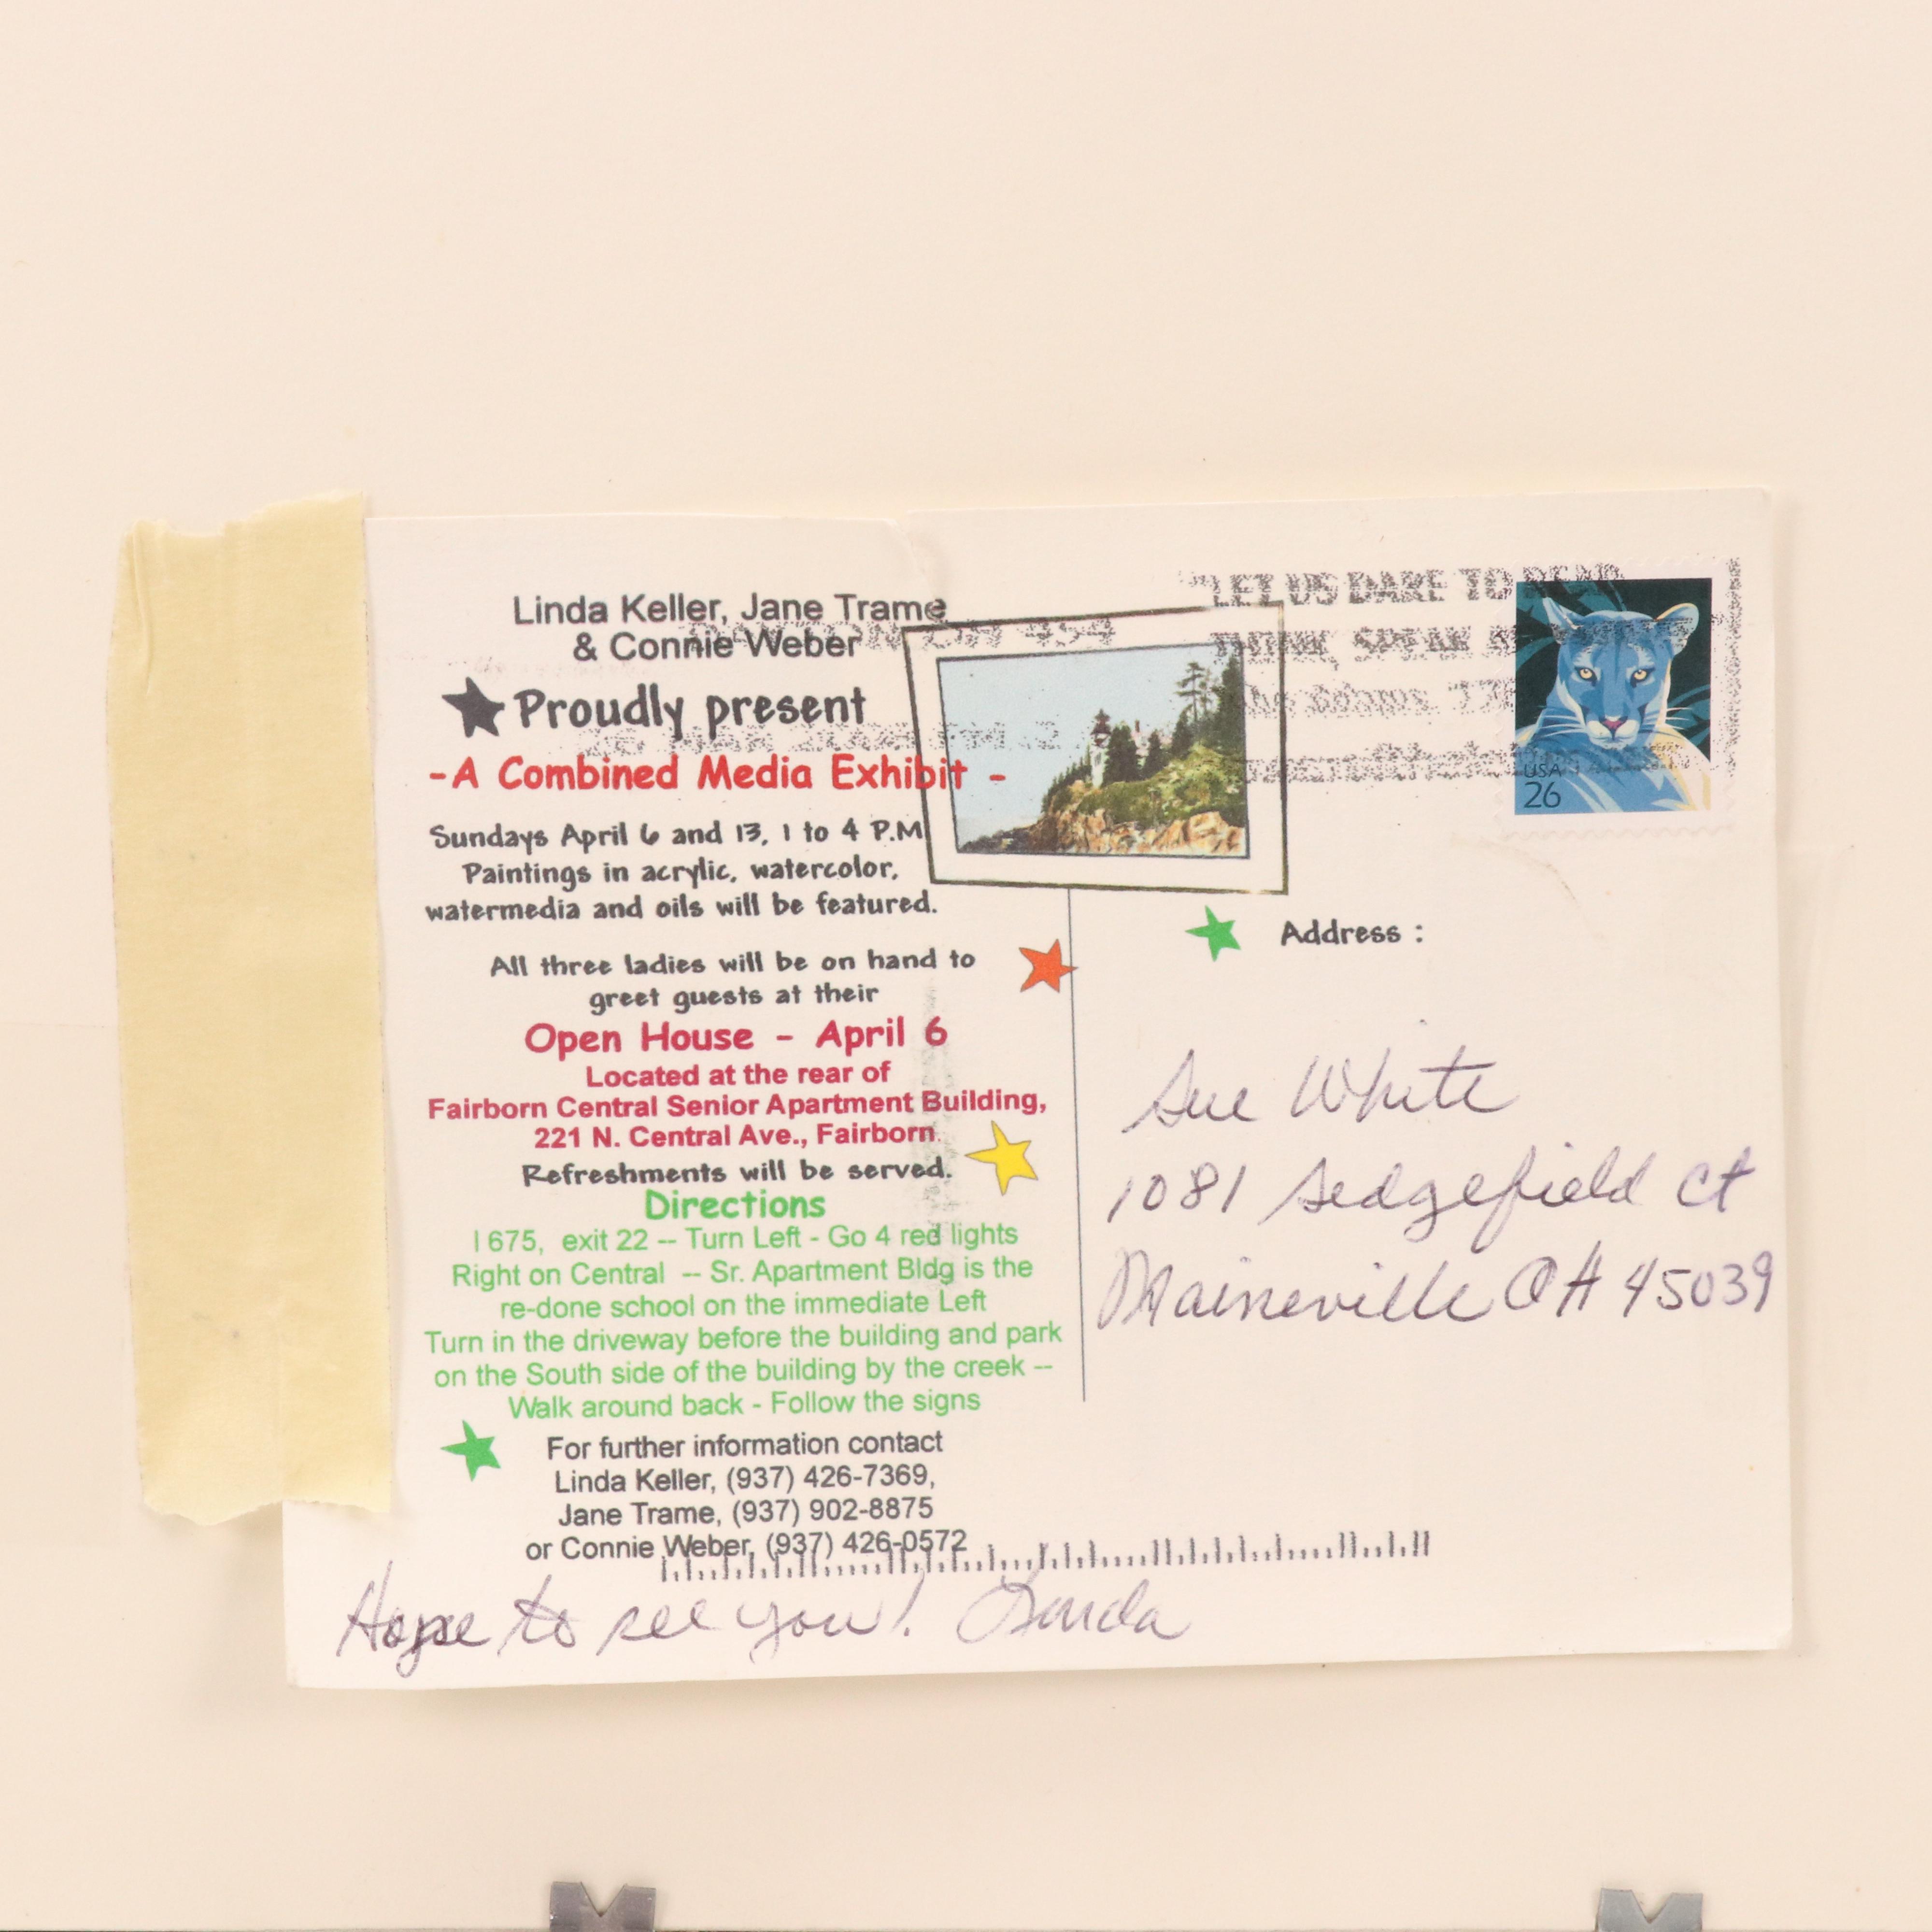 Linda Keller, Jane Trame
& Connie Weber
Proudly present
-A Combined Media Exhibit -
Sundays April 6 and 13, 1 to 4 P.M
Paintings in acrylic, watercolor,
watermedia and oils will be featured.
All three ladies will be on hand to
greet guests at their
Open House - April 6
Located at the rear of
Fairborn Central Senior Apartment Building,
221 N. Central Ave., Fairborn.
Refreshments will be served.
Directions
I 675, exit 22 -- Turn Left - Go 4 red lights
Right on Central -- Sr. Apartment Bldg is the
re-done school on the immediate Left
Turn in the driveway before the building and park
on the South side of the building by the creek --
Walk around back - Follow the signs
For further information contact
Linda Keller, (937) 426-7369,
Jane Trame, (937) 902-8875
or Connie Weber, (937) 426-0572
Hope to see you! Linda
LET US DARE TO READ
THINK, SPEAK
USA
26
Address :
Sue White
1081 Sedgefield Ct
Maineville OH 45039